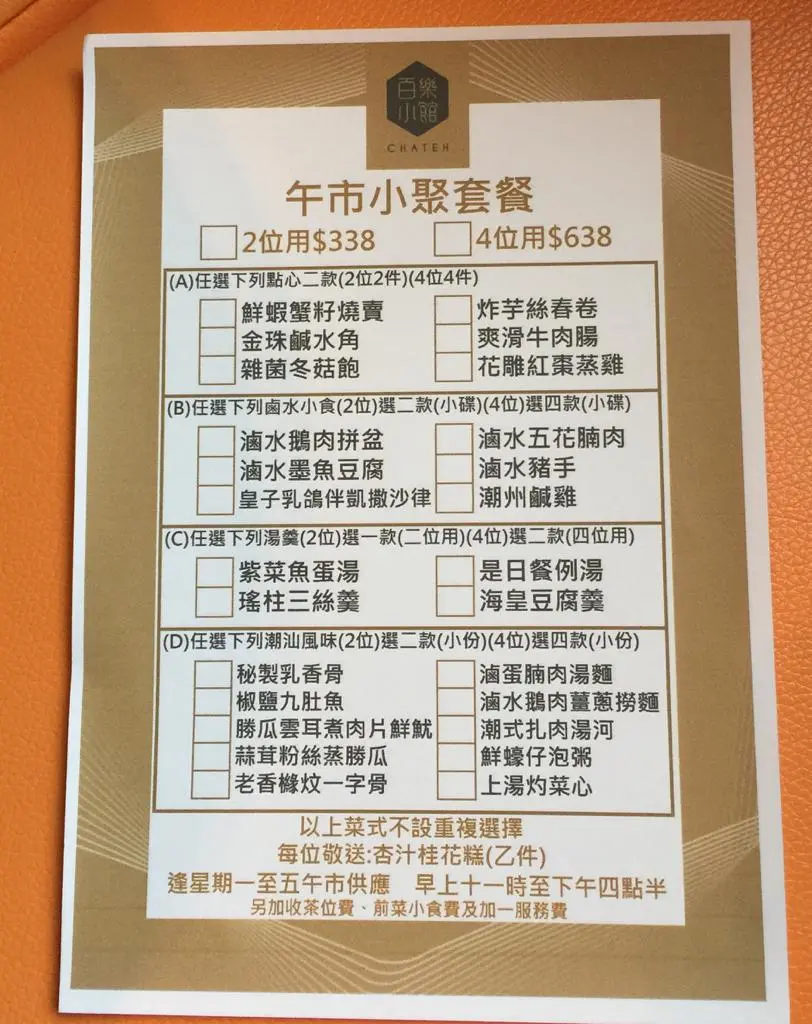 百樂
小館
CHATEH
午市小聚套餐
2位用$338 4位用$638
(A)任選下列點心二款(2位2件)(4位4件)
鮮蝦蟹籽燒賣 炸芋絲春卷
金珠鹹水角 爽滑牛肉腸
雜菌冬菇飽 花雕紅棗蒸雞
(B)任選下列鹵水小食(2位)選二款(小碟)(4位)選四款(小碟)
滷水鵝肉拼盆 滷水五花腩肉
滷水墨魚豆腐 滷水豬手
皇子乳鴿伴凱撒沙律 潮州鹹雞
(C)任選下列湯羹(2位)選一款(二位用)(4位)選二款(四位用)
紫菜魚蛋湯 是日餐例湯
瑤柱三絲羹 海皇豆腐羹
(D)任選下列潮汕風味(2位)選二款(小份)(4位)選四款(小份)
秘製乳香骨 滷蛋腩肉湯麵
椒鹽九肚魚 滷水鵝肉薑蔥撈麵
勝瓜雲耳煮肉片鮮魷 潮式扎肉湯河
蒜茸粉絲蒸勝瓜 鮮蠔仔泡粥
老香櫞炆一字骨 上湯灼菜心
以上菜式不設重複選擇
每位敬送:杏汁桂花糕(乙件)
逢星期一至五午市供應 早上十一時至下午四點半
另加收茶位費、前菜小食費及加一服務費